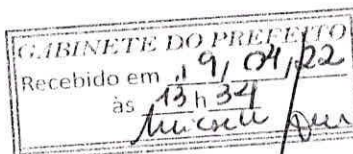 GABINETE DO PREFEITO
Recebido em 19/04/22
às 13h34